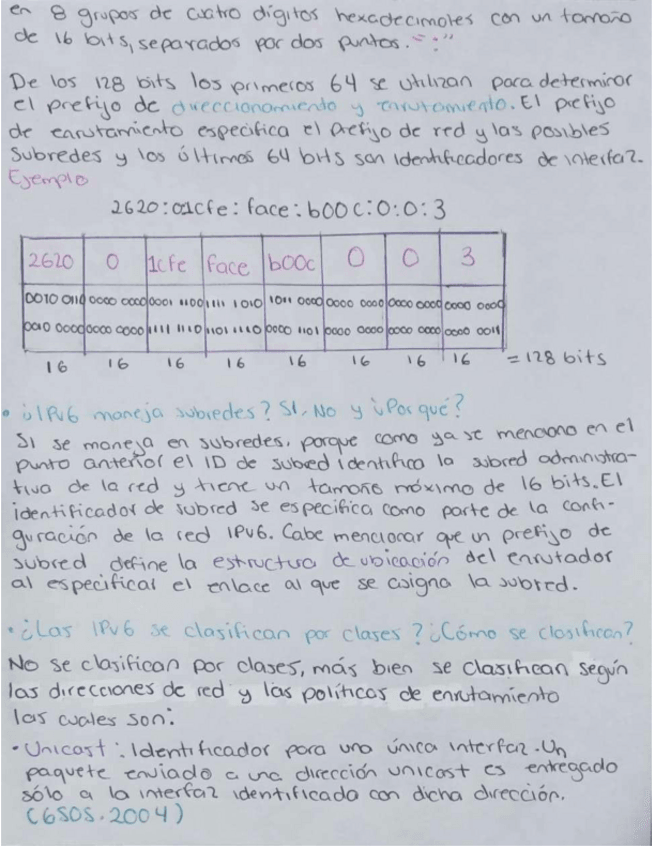 en 8 grupos de cuatro dígitos hexadecimales con un tamaño
de 16 bits, separados por dos puntos. ":"
De los 128 bits los primeros 64 se utilizan para determinar
el prefijo de direccionamiento y enrutamiento. El prefijo
de enrutamiento especifica el prefijo de red y las posibles
subredes y los últimos 64 bits son identificadores de interfaz.
Ejemplo
2620:01cfe:face:b00c:0:0:3
2620 0 1cfe face b00c 0 0 3
0010 0110 0000 0000 0001 1100 1111 1010 1011 0000 0000 0000 0000 0000 0000 0000
0010 0000 0000 0000 1111 1110 1101 1110 0000 1101 0000 0000 0000 0000 0000 0011
16 16 16 16 16 16 16 16 = 128 bits
• ¿IPv6 maneja subredes? SI, No y ¿Por qué?
Si se maneja en subredes, porque como ya se menciono en el
punto anterior el ID de subred identifica la subred administra-
tiva de la red y tiene un tamaño máximo de 16 bits. El
identificador de subred se especifica como parte de la confi-
guración de la red IPv6. Cabe mencionar que un prefijo de
subred define la estructura de ubicación del enrutador
al especificar el enlace al que se asigna la subred.
• ¿Las IPv6 se clasifican por clases? ¿Cómo se clasifican?
No se clasifican por clases, más bien se clasifican según
las direcciones de red y las políticas de enrutamiento
las cuales son:
• Unicast: Identificador para una única interfaz. Un
paquete enviado a una dirección unicast es entregado
sólo a la interfaz identificada con dicha dirección.
(6SOS, 2004)